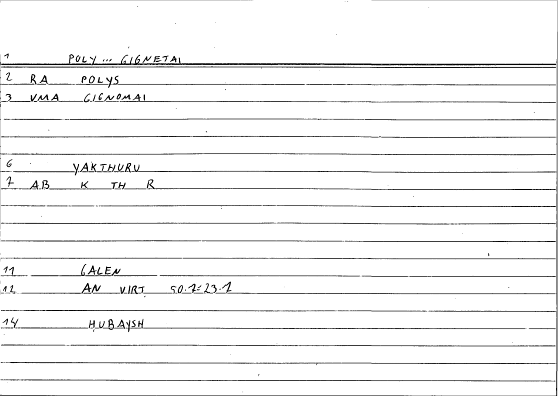 1 POLY ... GIGNETAI
2 RA POLYS
3 VMA GIGNOMAI
6 YAKTHURU
7 AB K TH R
11 GALEN
12 AN VIRT 50.2=23.2
14 HUBAYSH